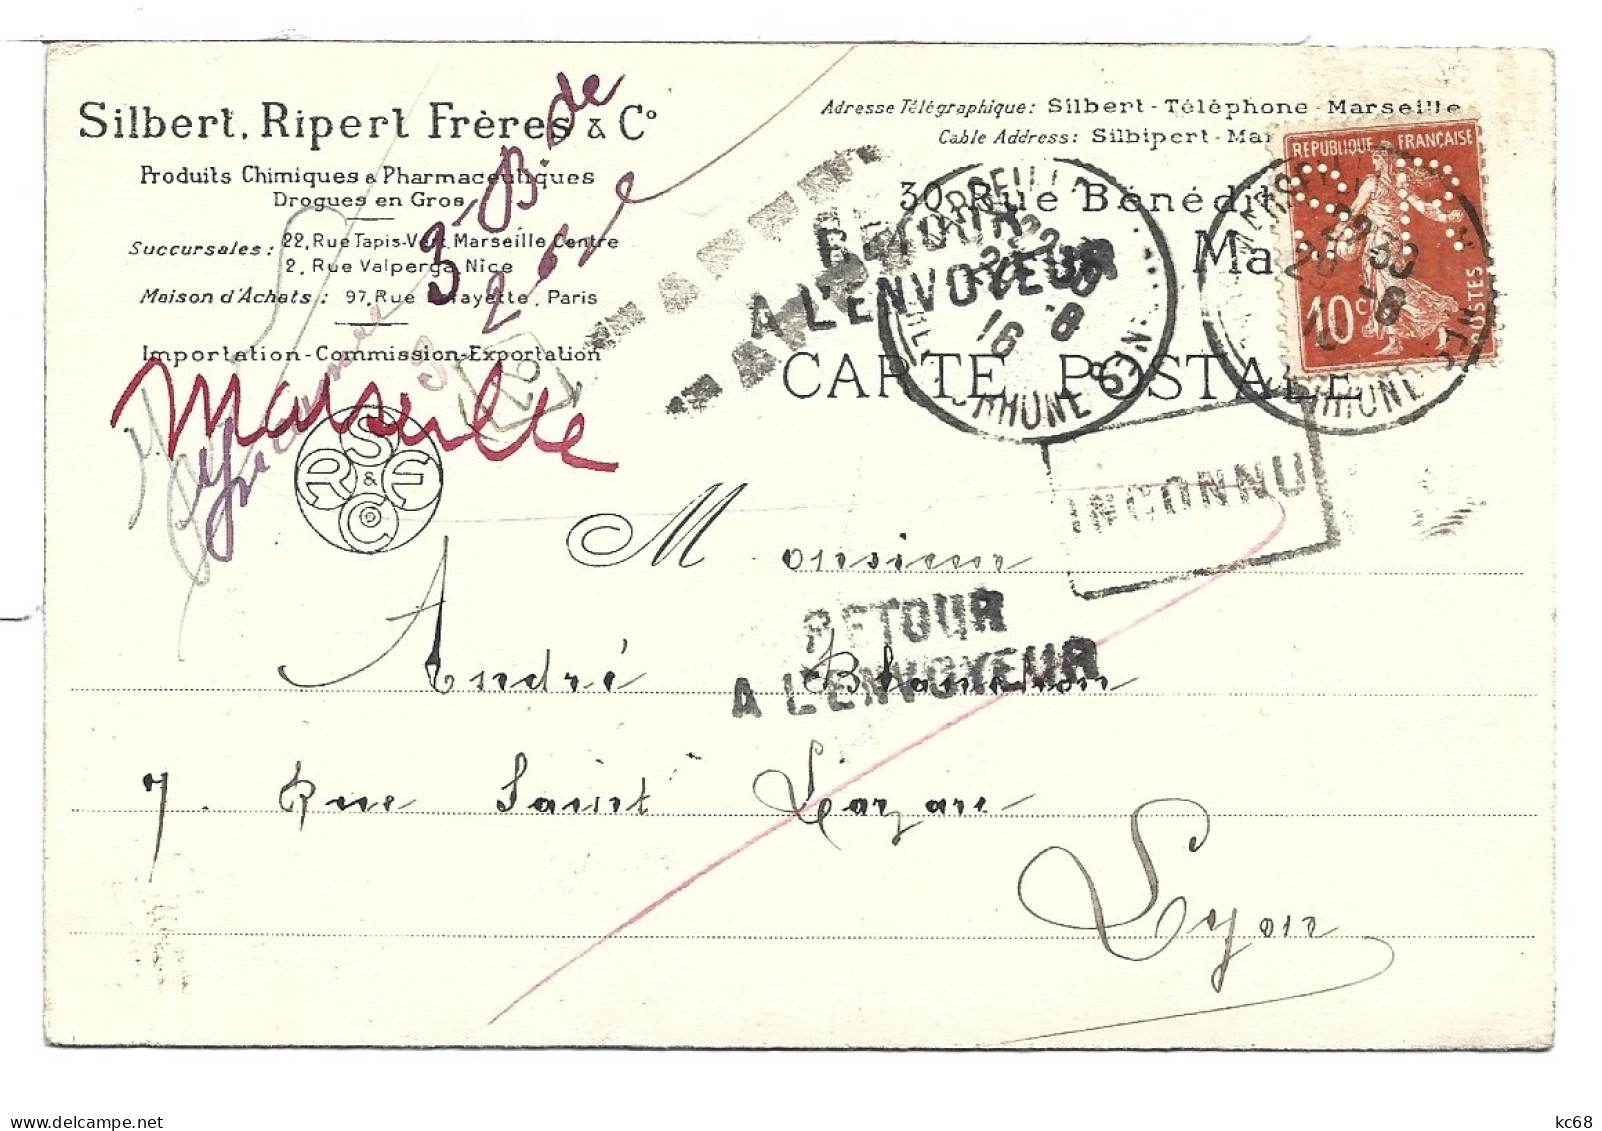 Silbert, Ripert Frères & C°
Produits Chimiques & Pharmaceutiques
Drogues en Gros
Succursales: 22, Rue Tapis-Vert, Marseille Centre
2, Rue Valperga, Nice
Maison d'Achats: 97, Rue Lafayette, Paris
Importation-Commission-Exportation
Adresse Télégraphique: Silbert-Téléphone-Marseille
Cable Address: Silbipert-Mar
30, Rue Bénédit
Ma
CARTE POSTALE
REPUBLIQUE FRANÇAISE
10 c
POSTES
RETOUR
A L'ENVOYEUR
Marseille
INCONNU
R S F & C
M onsieur
RETOUR
A L'ENVOYEUR
André
7. Rue Saint Lazare
Lyon
kc68